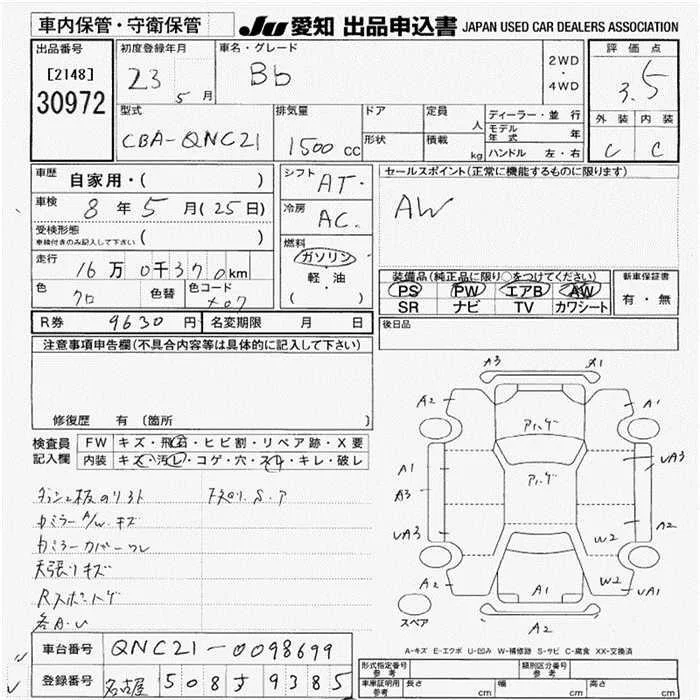 車内保管・守衛保管
JU 愛知 出品申込書 JAPAN USED CAR DEALERS ASSOCIATION
出品番号
[2148]
30972
初度登録年月
23 5月
車名・グレード
Bb
2WD
・
4WD
評価点
3.5
外装 内装
C C
型式
CBA-QNC21
排気量
1500 cc
ドア
形状
定員 人
積載 kg
ディーラー・並行
モデル年式 年
ハンドル 左・右
車歴 自家用・( )
車検 8年5月(25日)
受検形態
車検付きのみ記入して下さい ( )
走行 16万0千370km
色 クロ
色替
色コード X07
シフト AT.
冷房 AC.
燃料
ガソリン
軽・油
( )
セールスポイント(正常に機能するものに限ります)
AW
装備品(純正品に限り○をつけてください)
PS PW エアB AW
SR ナビ TV カワシート
新車保証書
有・無
R券 9630円 名変期限 月 日
後日品
注意事項申告欄(不具合内容等は具体的に記入して下さい)
修復歴 有 〔箇所 〕
検査員記入欄
FW キズ・飛石・ヒビ割・リペア跡・X要
内装 キズ・汚レ・コゲ・穴・スレ・キレ・破レ
カミラーカバーワレ
天張りキズ
各A・U
A3 X1
A2 A1
アハ・ゲ
アハ・ゲ
A1
A3
UA3
UA3
A2
W2
W2
A2
UA1
A1
A2
スペア
A-キズ E-エクボ U-凹み W-補修跡 S-サビ C-腐食 XX-交換済
車台番号 QNC21-0098699
登録番号 名古屋 508 す 9385
形式指定番号 参考
類別区分番号 参考
車庫証明用 参考 長さ cm 幅 cm 高さ cm